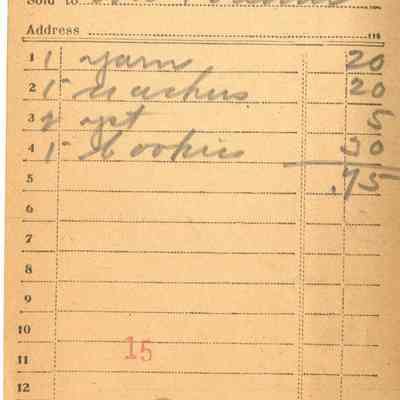 Sold to
Address
1 1 yam 20
2 1 crackers 20
3 2 yst 5
4 1 cookies 30
5 .75
6
7
8
9
10
11 15
12